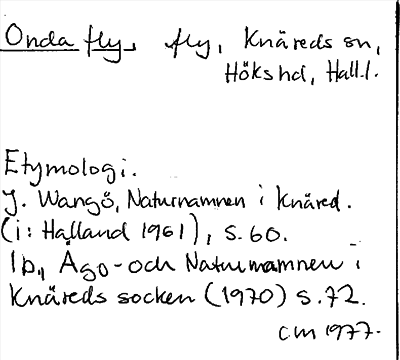 Onda fly, fly, Knäreds sn,
Hökshd, Hall.
Etymologi.
J. Wangö, Naturnamnen i Knäred.
(i: Halland 1961), s. 60.
Ib., Ägo- och Naturnamnen i
Knäreds socken (1970) s. 72.
CM 1977.